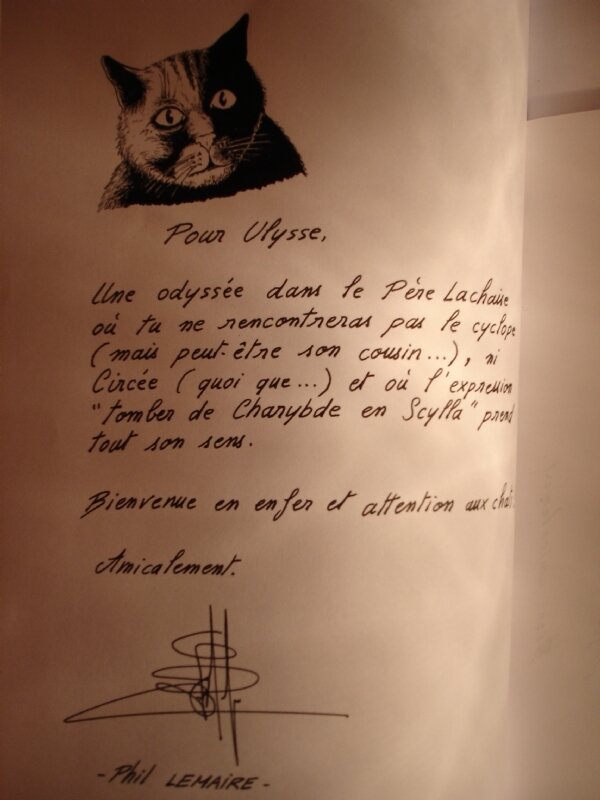 Pour Ulysse,
Une odyssée dans le Père Lachaise
où tu ne rencontreras pas le cyclope
(mais peut-être son cousin...), ni
Circée (quoi que...) et où l'expression
"tomber de Charybde en Scylla" prend
tout son sens.
Bienvenue en enfer et attention aux chats
Amicalement.
- Phil LEMAIRE -